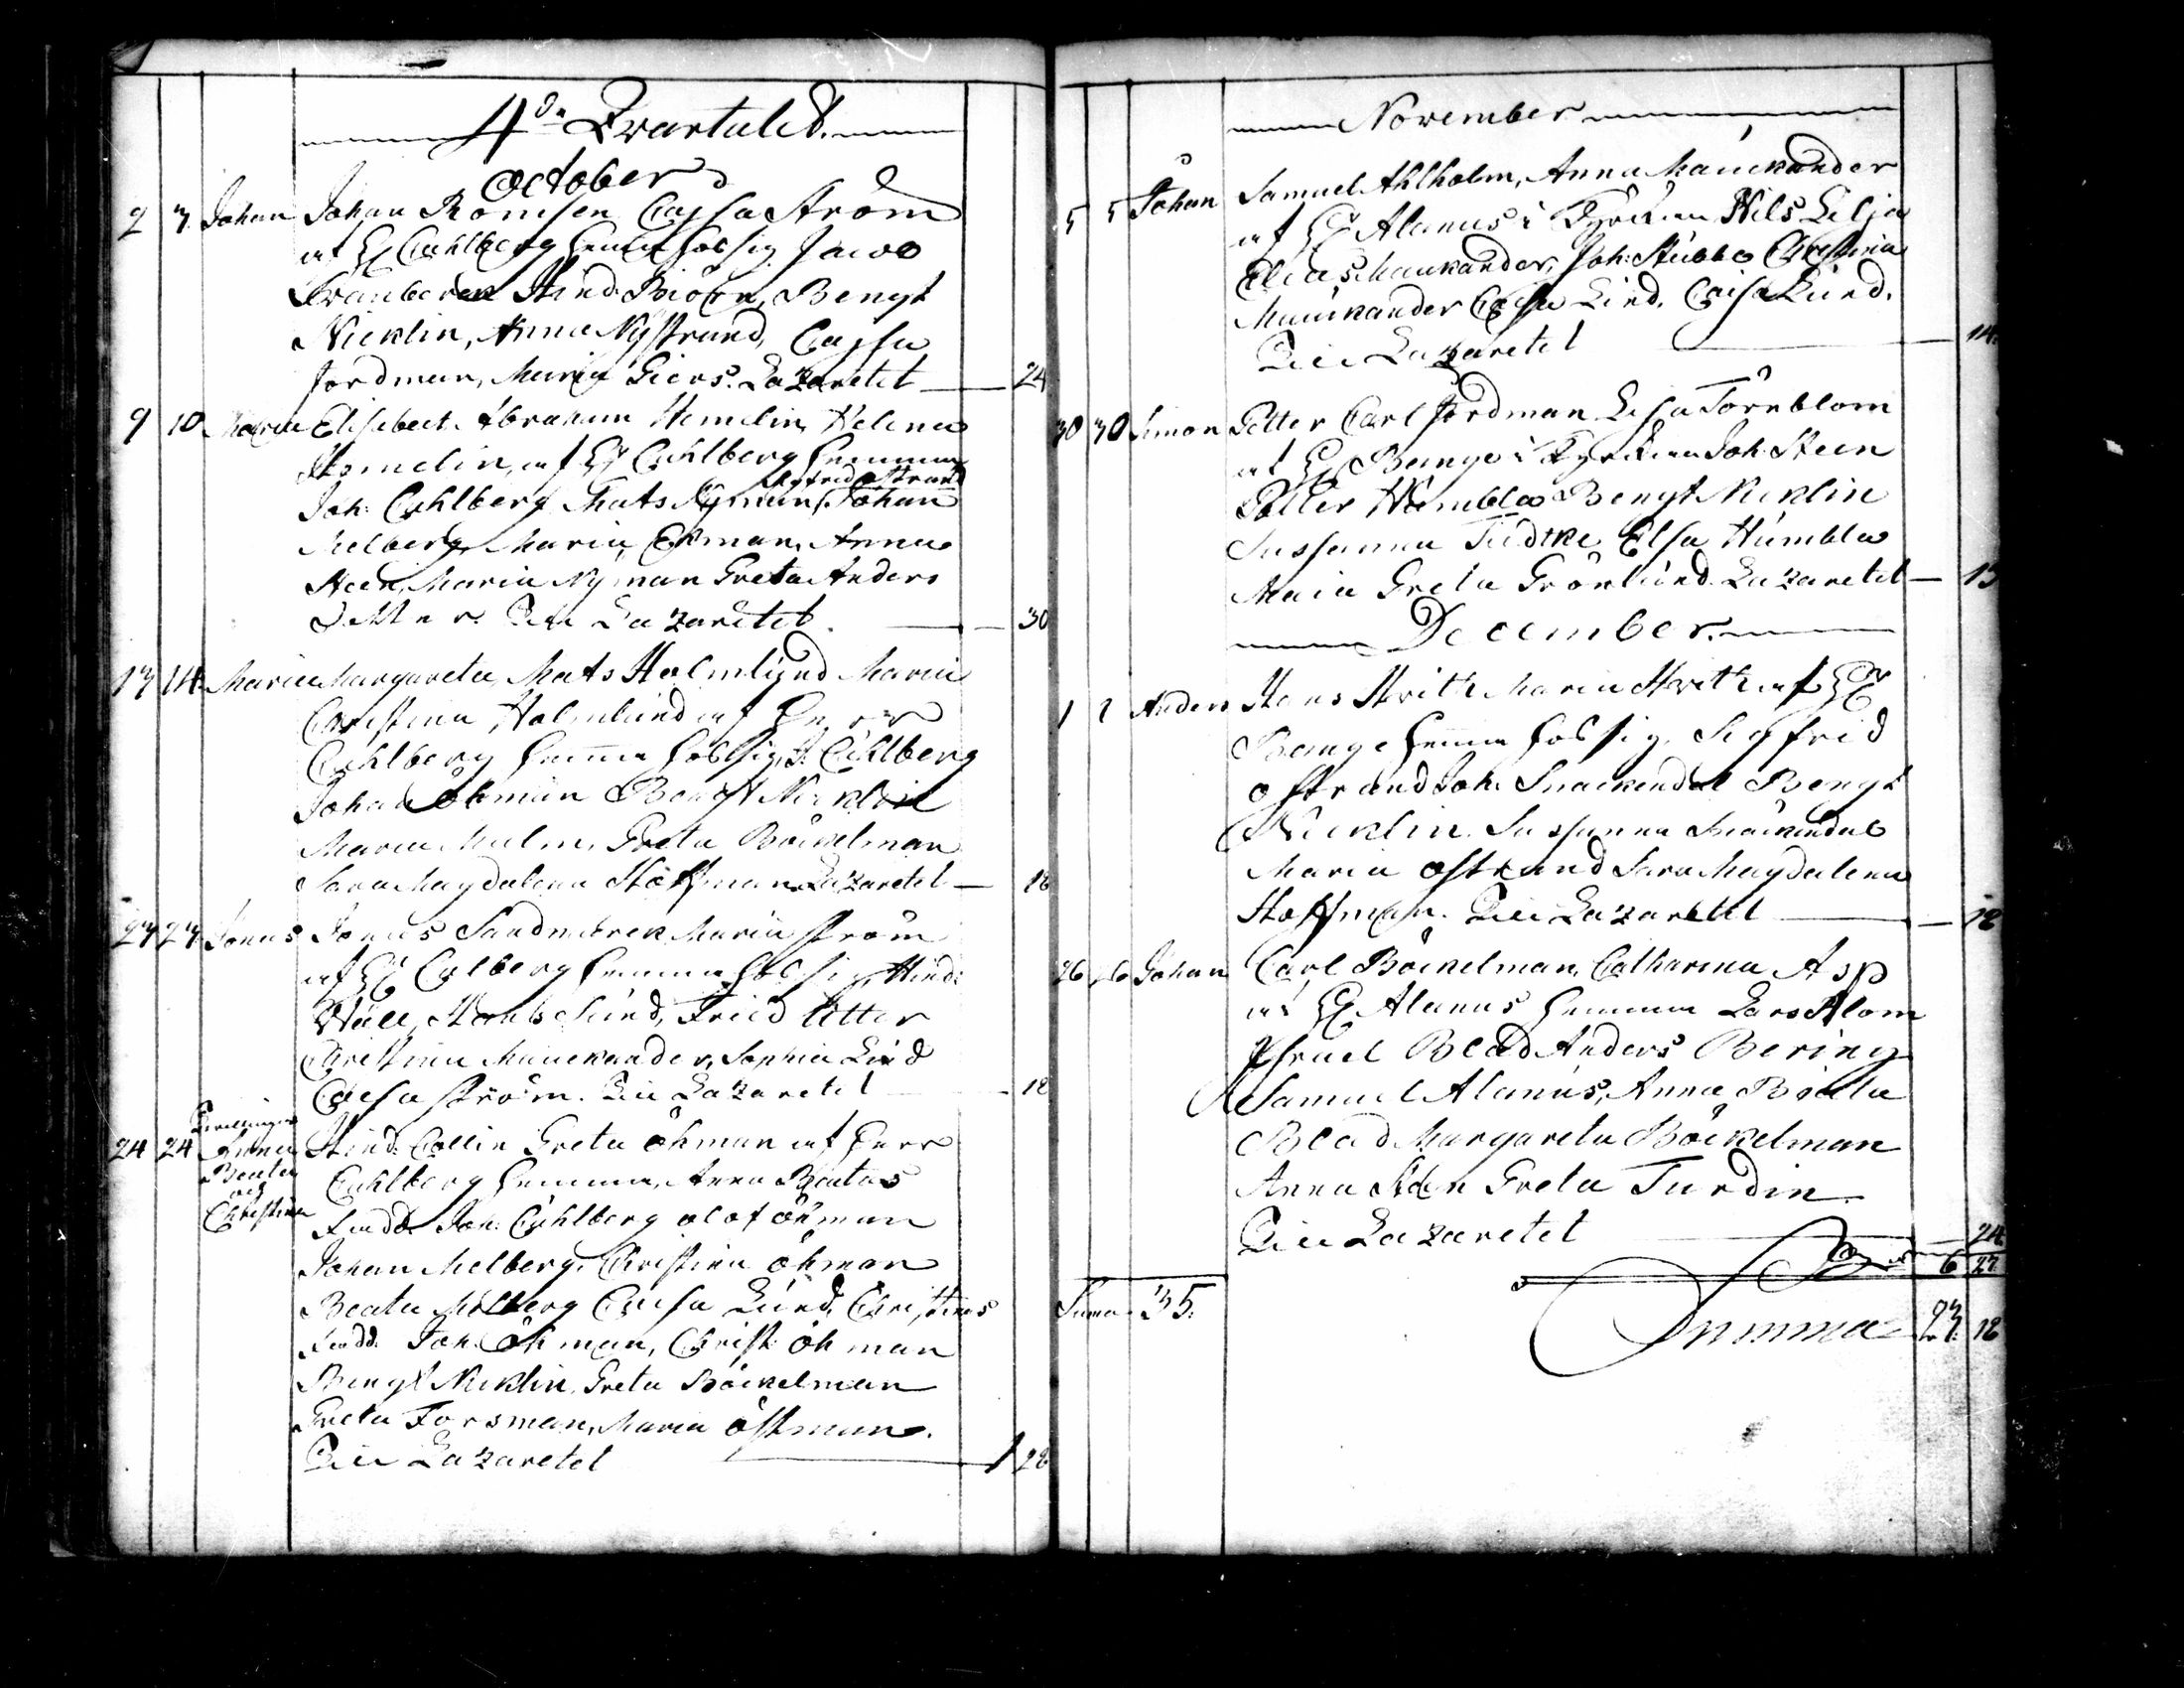 4de Qvartalet.
October
2 3 Johan Johan Romsen Cajsa Ström
af H Cahlberg hemma hos sig Jacob
Hind. Biörn, Bengt
Nicklin, Anna Nystrand, Cajsa
Jordman, Maria Giers. Lazaretet — 24
9 10 Maria Elisabeet. Abraham Hemelin Helena
Hemelin, af H Cahlberg hemma
Sigfrid Ostrand
Joh: Cahlberg Mats Nyman, Johan
Melberg Maria Ekman, Anna
Steen, Maria Nyman Greta Anders
Dotter. Lazaretet — 30
13 14 Maria Margareta Mats Holmlund Maria
Christina Holmlund af Herr
Cahlberg hemma hos sig, J: Cahlberg
Johan Öhman Bengt Nicklin
Maria Malm, Greta Böckelman
Sara Magdalena Hoffman Lazaretet — 18
23 23 Jonas Jonas Sandmarck Maria Ström
af H Calberg hemma hos sig, Hind:
Wall, Lund, Fried
Christina Munckander, Sophia Lind
Caisa Ström. Lazaretet — 18
Tvillingar
24 24 Anna Hind. Collin Greta Öhman af Herr
Beata
och Cahlberg hemma, Anna Beatas
Christina Fadd. Joh: Cahlberg Olof Öhman
Johan Melberg, Christina Öhman
Beata Melberg Caisa Lund, Christinas
Fadd. Joh. Öhman, Christ: Öhman
Bengt Nicklin, Greta Böckelman
Greta Forsman, Maria Östman.
Lazaretet — 1 28
November
5 5 Johan Samuel Ahlholm, Anna Munckander
af H Alanus i Kyrckan Nils Lilja
Elias Munkander, Joh: Stubbe Christina
Munckander Caisa Lind, Caisa Lund.
Lazaretet — 14.
30 30 Simon Petter Carl Jordman Lisa Törnblom
af H Bange i Kyrckan Joh. Steen
Petter Humbla Bengt Nicklin
Sussanna Tudtke Elsa Humbla
Maia Greta Grönlund. Lazaretet — 13
December.
1 2 Anders Hans Hvith Maria Hvith af H
Bange hemma hos sig, Sigfrid
Ostrand Joh. Snackendal Bengt
Nicklin. Sussanna Snäckendal
Maria Ostrand Sara Magdalena
Hoffman. Lazaretet — 18
26 26 Johan Carl Böckelman, Catharina Asp
af H Alanus hemma Lars Blom
Israel Blad Anders Bering
Samuel Alanus, Anna Beata
Blad Margareta Böckelman
Anna Sten Greta Turdin
Lazaretet — 24
6 27
Suma 35.
Summa 23 18